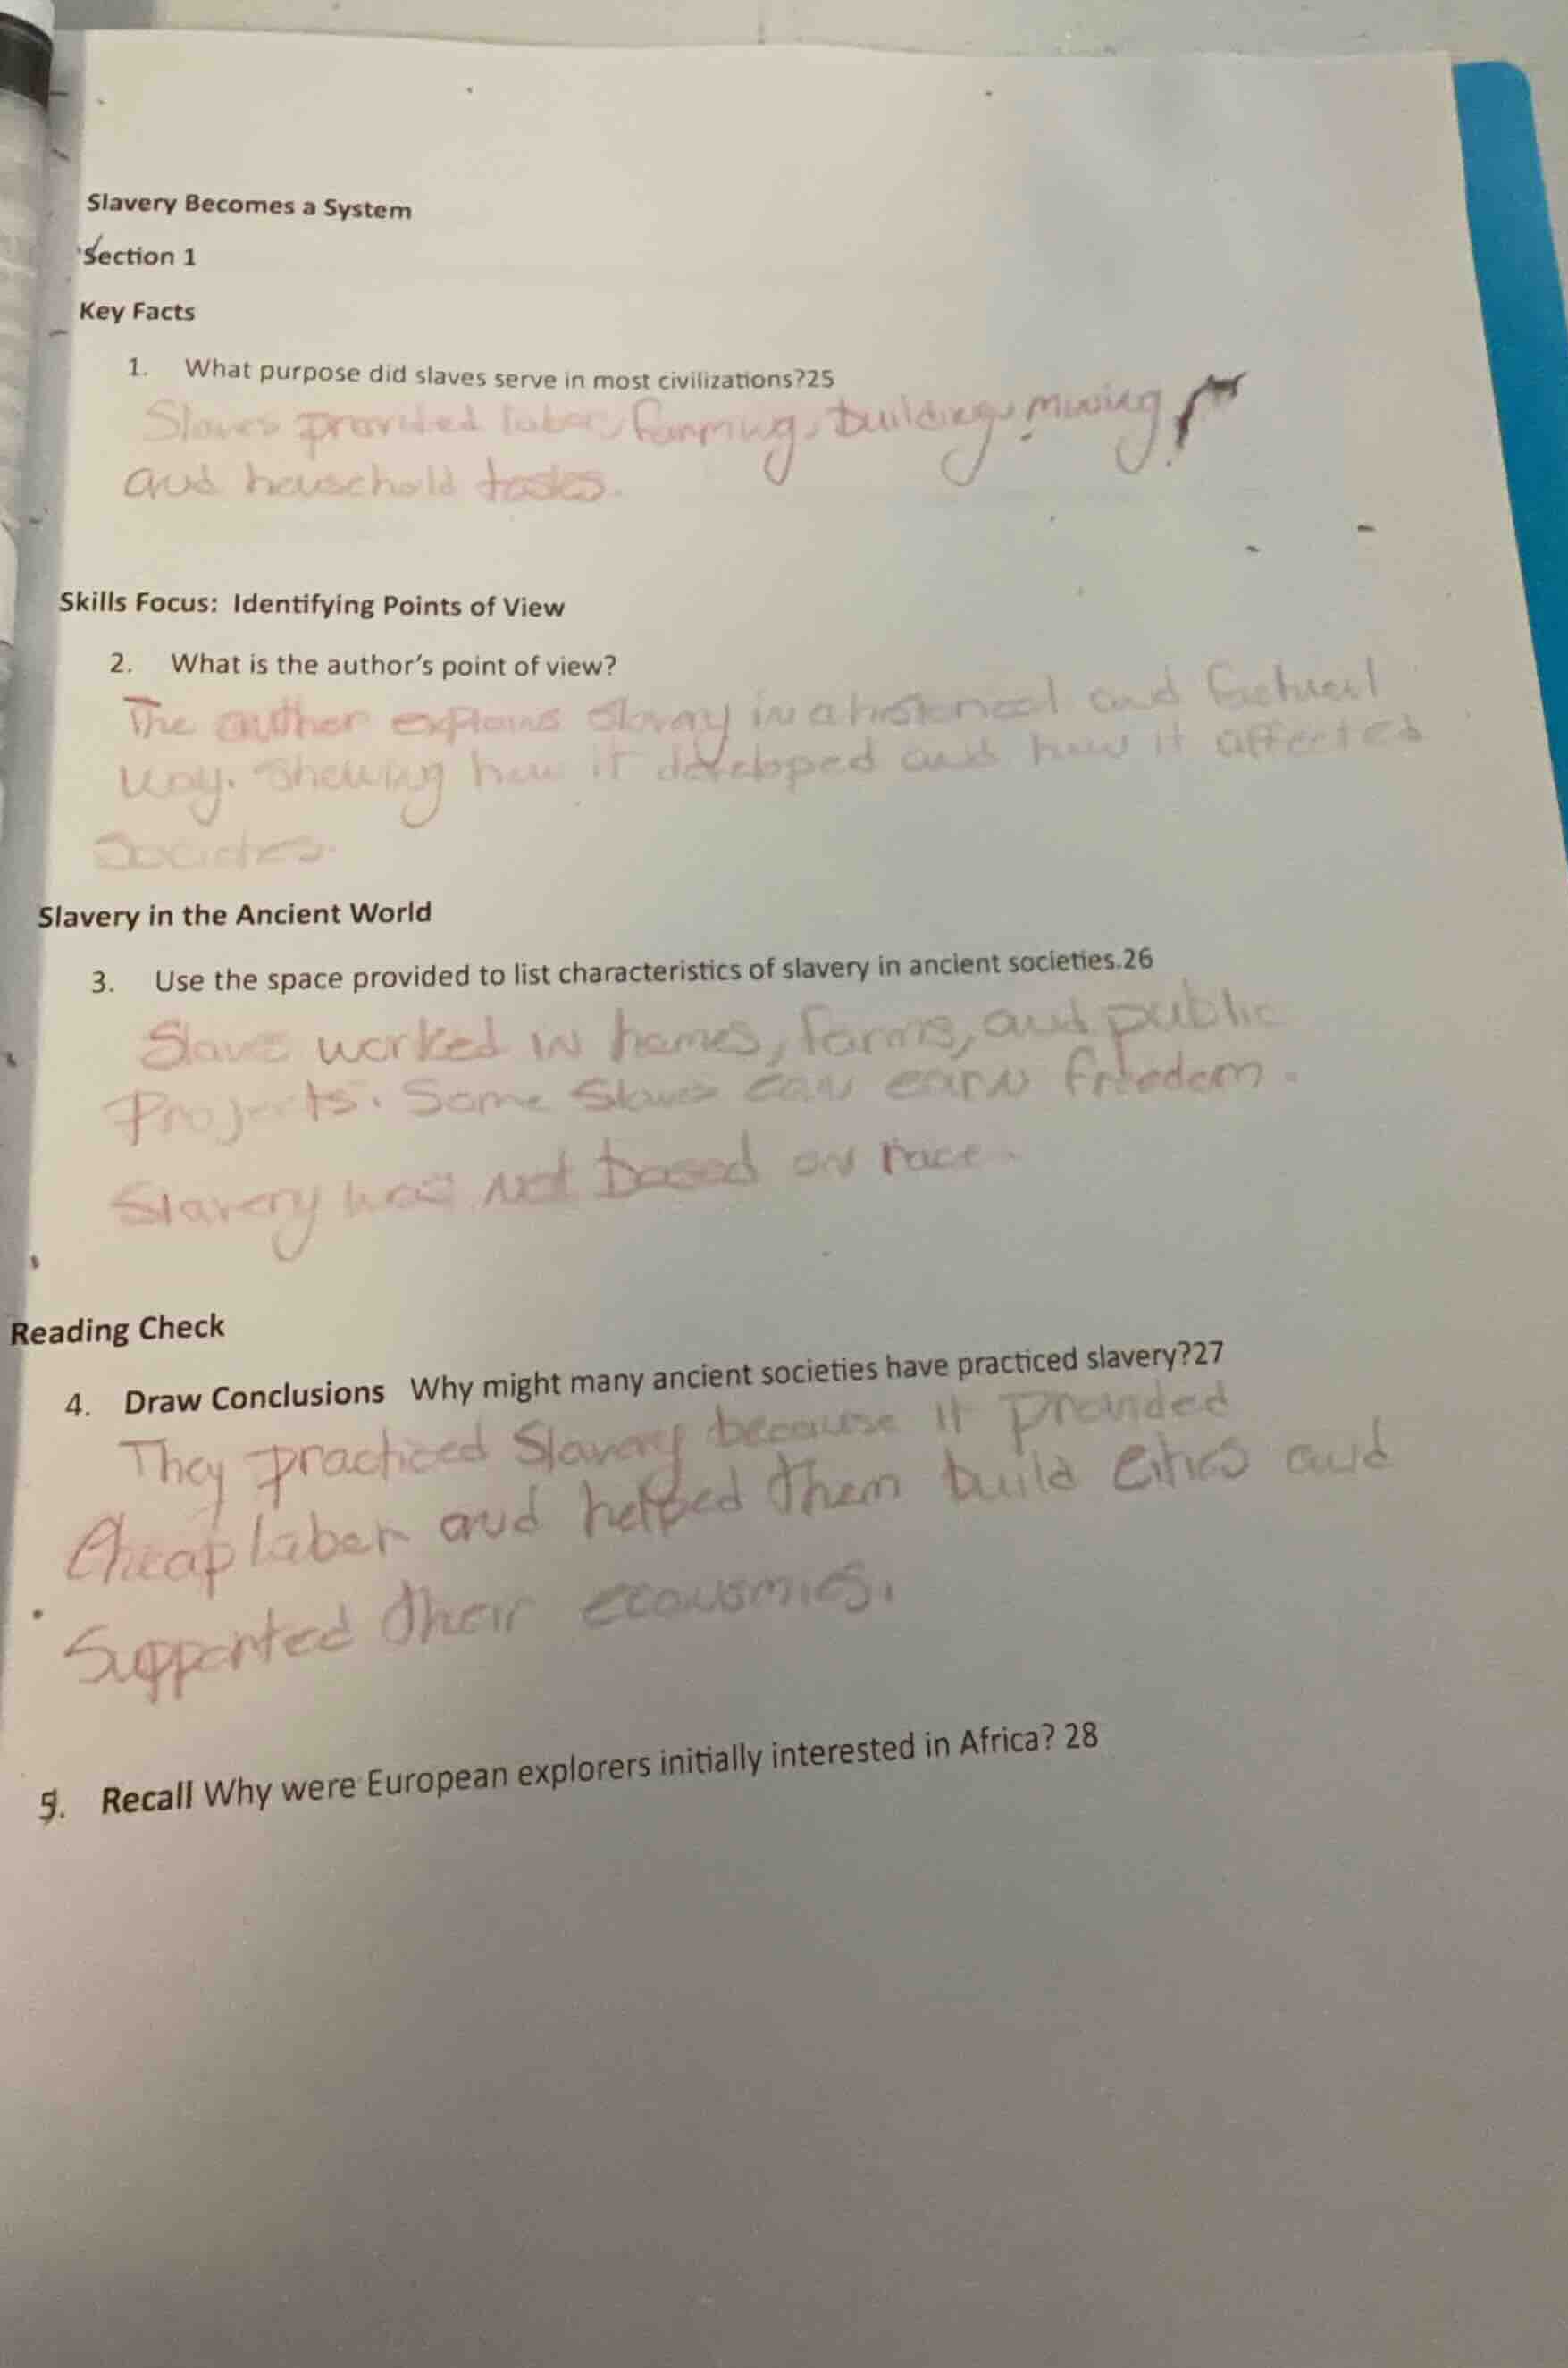 Slavery Becomes a System
Section 1
Key Facts
1. What purpose did slaves serve in most civilizations?25
Slaves provided labor, farming, building, mining,
and household tasks.
Skills Focus: Identifying Points of View
2. What is the author's point of view?
The author explains slavery in a historical and factual
way. Showing how it developed and how it affected
Societies.
Slavery in the Ancient World
3. Use the space provided to list characteristics of slavery in ancient societies.26
Slaves worked in homes, farms, and public
Projects. Some Slaves can earn freedom.
Slavery was not based on race.
Reading Check
4. Draw Conclusions Why might many ancient societies have practiced slavery?27
They practiced Slavery because it provided
Cheap labor and helped them build cities and
Supported their economies.
5. Recall Why were European explorers initially interested in Africa? 28